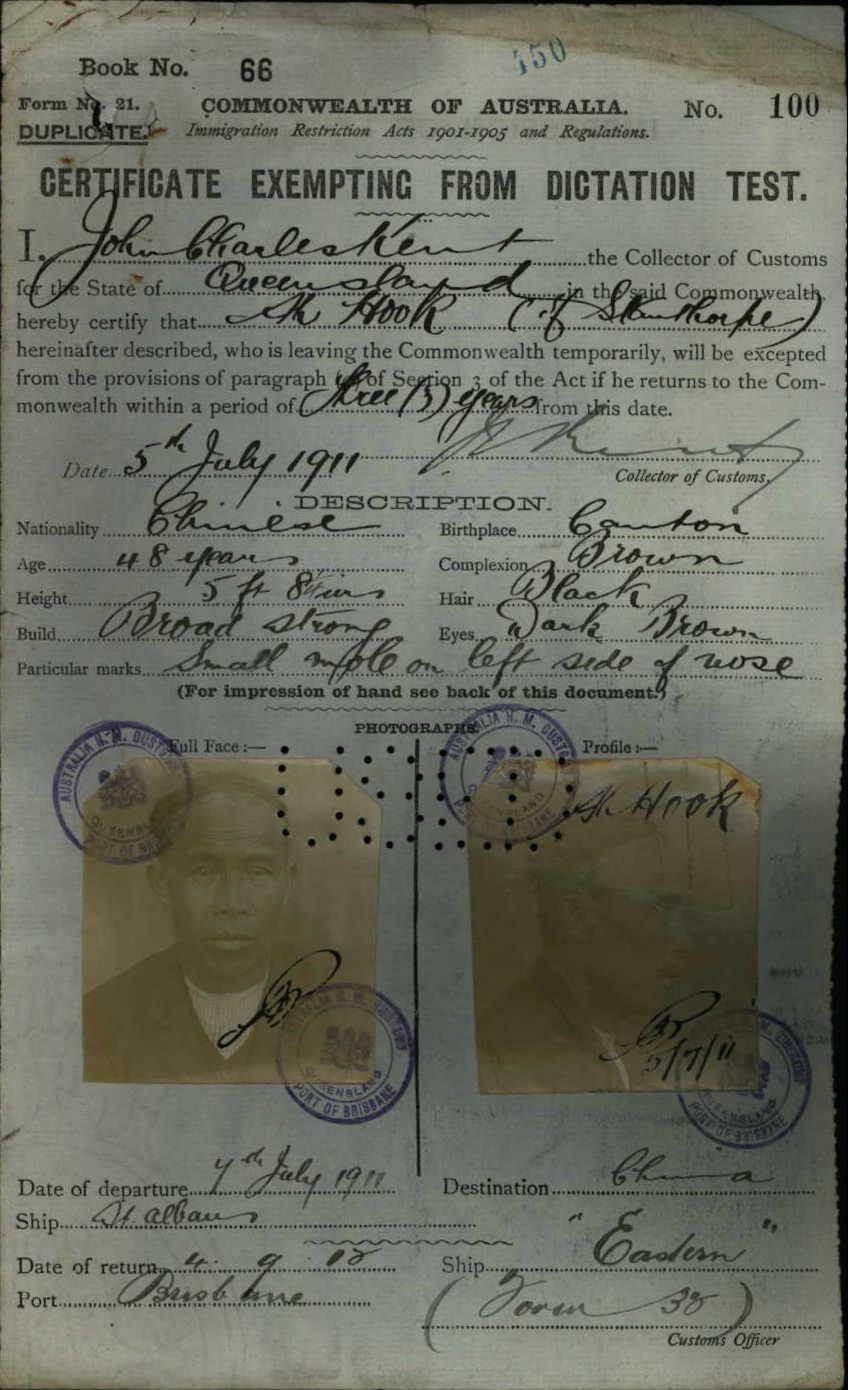 450
Book No. 66
Form No. 21. COMMONWEALTH OF AUSTRALIA. No. 100
DUPLICATE. Immigration Restriction Acts 1901-1905 and Regulations.
CERTIFICATE EXEMPTING FROM DICTATION TEST.
I, John Charles Kent the Collector of Customs
for the State of Queensland in the said Commonwealth,
hereby certify that Ah Hook (of Stanthorpe)
hereinafter described, who is leaving the Commonwealth temporarily, will be excepted
from the provisions of paragraph of Section 3 of the Act if he returns to the Com-
monwealth within a period of three (3) years from this date.
Date 5th July 1911
Collector of Customs.
DESCRIPTION.
Nationality Chinese Birthplace Canton
Age 48 years Complexion Brown
Height 5 ft 8 ins Hair Black
Build Broad strong Eyes Dark Brown
Particular marks Small mole on left side of nose
(For impression of hand see back of this document.)
PHOTOGRAPHS.
Full Face :— Profile :—
AUSTRALIA H. M. CUSTOMS QUEENSLAND PORT OF BRISBANE
AUSTRALIA H. M. CUSTOMS QUEENSLAND
Ah Hook
5/7/11
AUSTRALIA H. M. CUSTOMS QUEENSLAND PORT OF BRISBANE
H. M. CUSTOMS QUEENSLAND PORT OF BRISBANE
Date of departure 7th July 1911 Destination China
Ship St. Albans
Date of return 4 9 12 Ship "Eastern"
Port Brisbane (Form 32)
Customs Officer